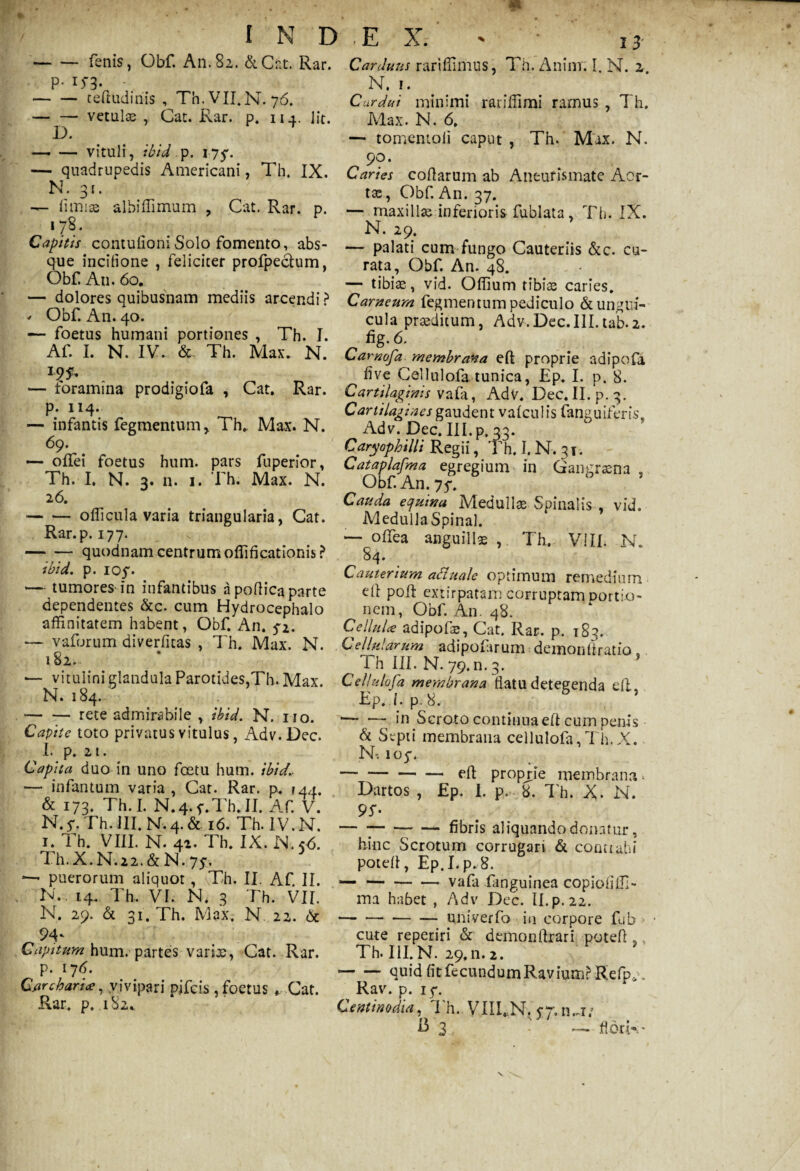 INDEX. 13
— — fenis, Obſ. An. 82. & Cat. Rar.
p. 153.
— — teſtudinis, Th. VII. N. 76.
— — vetulæ, Cat. Rar. p. 114. lit.
D.
— — vituli, ibid p. 175.
— quadrupedis Americani, Th. IX.
N. 31.
— ſimiæ albiſſimum, Cat. Rar. p.
178.
Capitis contuſioni Solo fomento, abs-
que inciſione, feliciter proſpectum,
Obſ. An. 60.
— dolores quibusnam mediis arcendi?
Obſ. An. 40.
— foetus humani portiones, Th. I.
Aſ. I. N. IV. & Th. Max. N.
195.
— foramina prodigioſa, Cat. Rar.
p. 114.
— infantis ſegmentum, Th. Max. N.
69.
— oſſei foetus hum. pars ſuperior,
Th. I. N. 3. n. 1. Th. Max. N.
26.
— — oſſicula varia triangularia, Cat.
Rar. p. 177.
— — quodnam centrum oſſificationis?
ibid. p. 105.
— tumores in infantibus à poſtica parte
dependentes &c. cum Hydrocephalo
affinitatem habent, Obſ. An. 52.
— vaſorum diverſitas, Th. Max. N.
182.
— vitulini glandula Parotides, Th. Max.
N. 184.
— — rete admirabile, ibid. N. 110.
Capite toto privatus vitulus, Adv. Dec.
I. p. 21.
Capita duo in uno fœtu hum. ibid.
— infantum varia, Cat. Rar. p. 144.
& 173. Th. I. N. 4. 5. Th. II. Aſ. V.
N. 5. Th. III. N. 4. & 16. Th. IV. N.
1. Th. VIII. N. 42. Th. IX. N. 56.
Th. X. N. 22. & N. 75.
— puerorum aliquot, Th. II. Aſ. II.
N. 14. Th. VI. N. 3 Th. VII.
N. 29. & 31. Th. Max. N 22. &
94.
Capitum hum. partes variæ, Cat. Rar.
p. 176.
Carchariæ, vivipari piſcis, foetus. Cat.
Rar. p. 182.
Carduus rariſſimus, Th. Anim. I. N. 2.
N. 1.
Cardui minimi rariſſimi ramus, Th.
Max. N. 6.
— tomentoſi caput, Th. Max. N.
90.
Caries coſtarum ab Aneuriſmate Aor-
tæ, Obſ. An. 37.
— maxillæ inferioris ſublata, Th. IX.
N. 29.
— palati cum fungo Cauteriis &c. cu-
rata, Obſ. An. 48.
— tibiæ, vid. Oſſium tibiæ caries.
Carneum ſegmentum pediculo & ungui-
cula præditum, Adv. Dec. III. tab. 2.
fig. 6.
Carnoſa membrana eſt proprie adipoſa
ſive Celluloſa tunica, Ep. I. p. 8.
Cartilaginis vaſa, Adv. Dec. II. p. 3.
Cartilagines gaudent vaſculis ſanguiferis,
Adv. Dec. III. p. 33.
Caryophilli Regii, Th. I. N. 31.
Cataplaſma egregium in Gangræna,
Obſ. An. 75.
Cauda equina Medullæ Spinalis, vid.
Medulla Spinal.
— oſſea anguillæ, Th. VIII. N.
84.
Cauterium actuale optimum remedium
eſt poſt extirpatam corruptam portio-
nem, Obſ. An. 48.
Cellulæ adipoſæ, Cat. Rar. p. 183.
Cellularum adipoſarum demonſtratio,
Th III. N. 79. n. 3.
Celluloſa membrana flatu detegenda eſt,
Ep. I. p. 8.
— — in Scroto continua eſt cum penis
& Septi membrana celluloſa, Th. X.
N. 105.
— — — — eſt proprie membrana
Dartos, Ep. I. p. 8. Th. X. N.
95.
— — — — fibris aliquando donatur,
hinc Scrotum corrugari & contrahi
poteſt, Ep. I. p. 8.
— — — — vaſa ſanguinea copioſiſſi-
ma habet, Adv Dec. II. p. 22.
— — — — univerſo in corpore ſub
cute reperiri & demonſtrari poteſt,
Th. III. N. 29. n. 2.
— — quid ſit ſecundum Ravium? Reſp.
Rav. p. 15.
Centinodia, Th. VIII. N. 57. n. 1.
B 3 — flori-